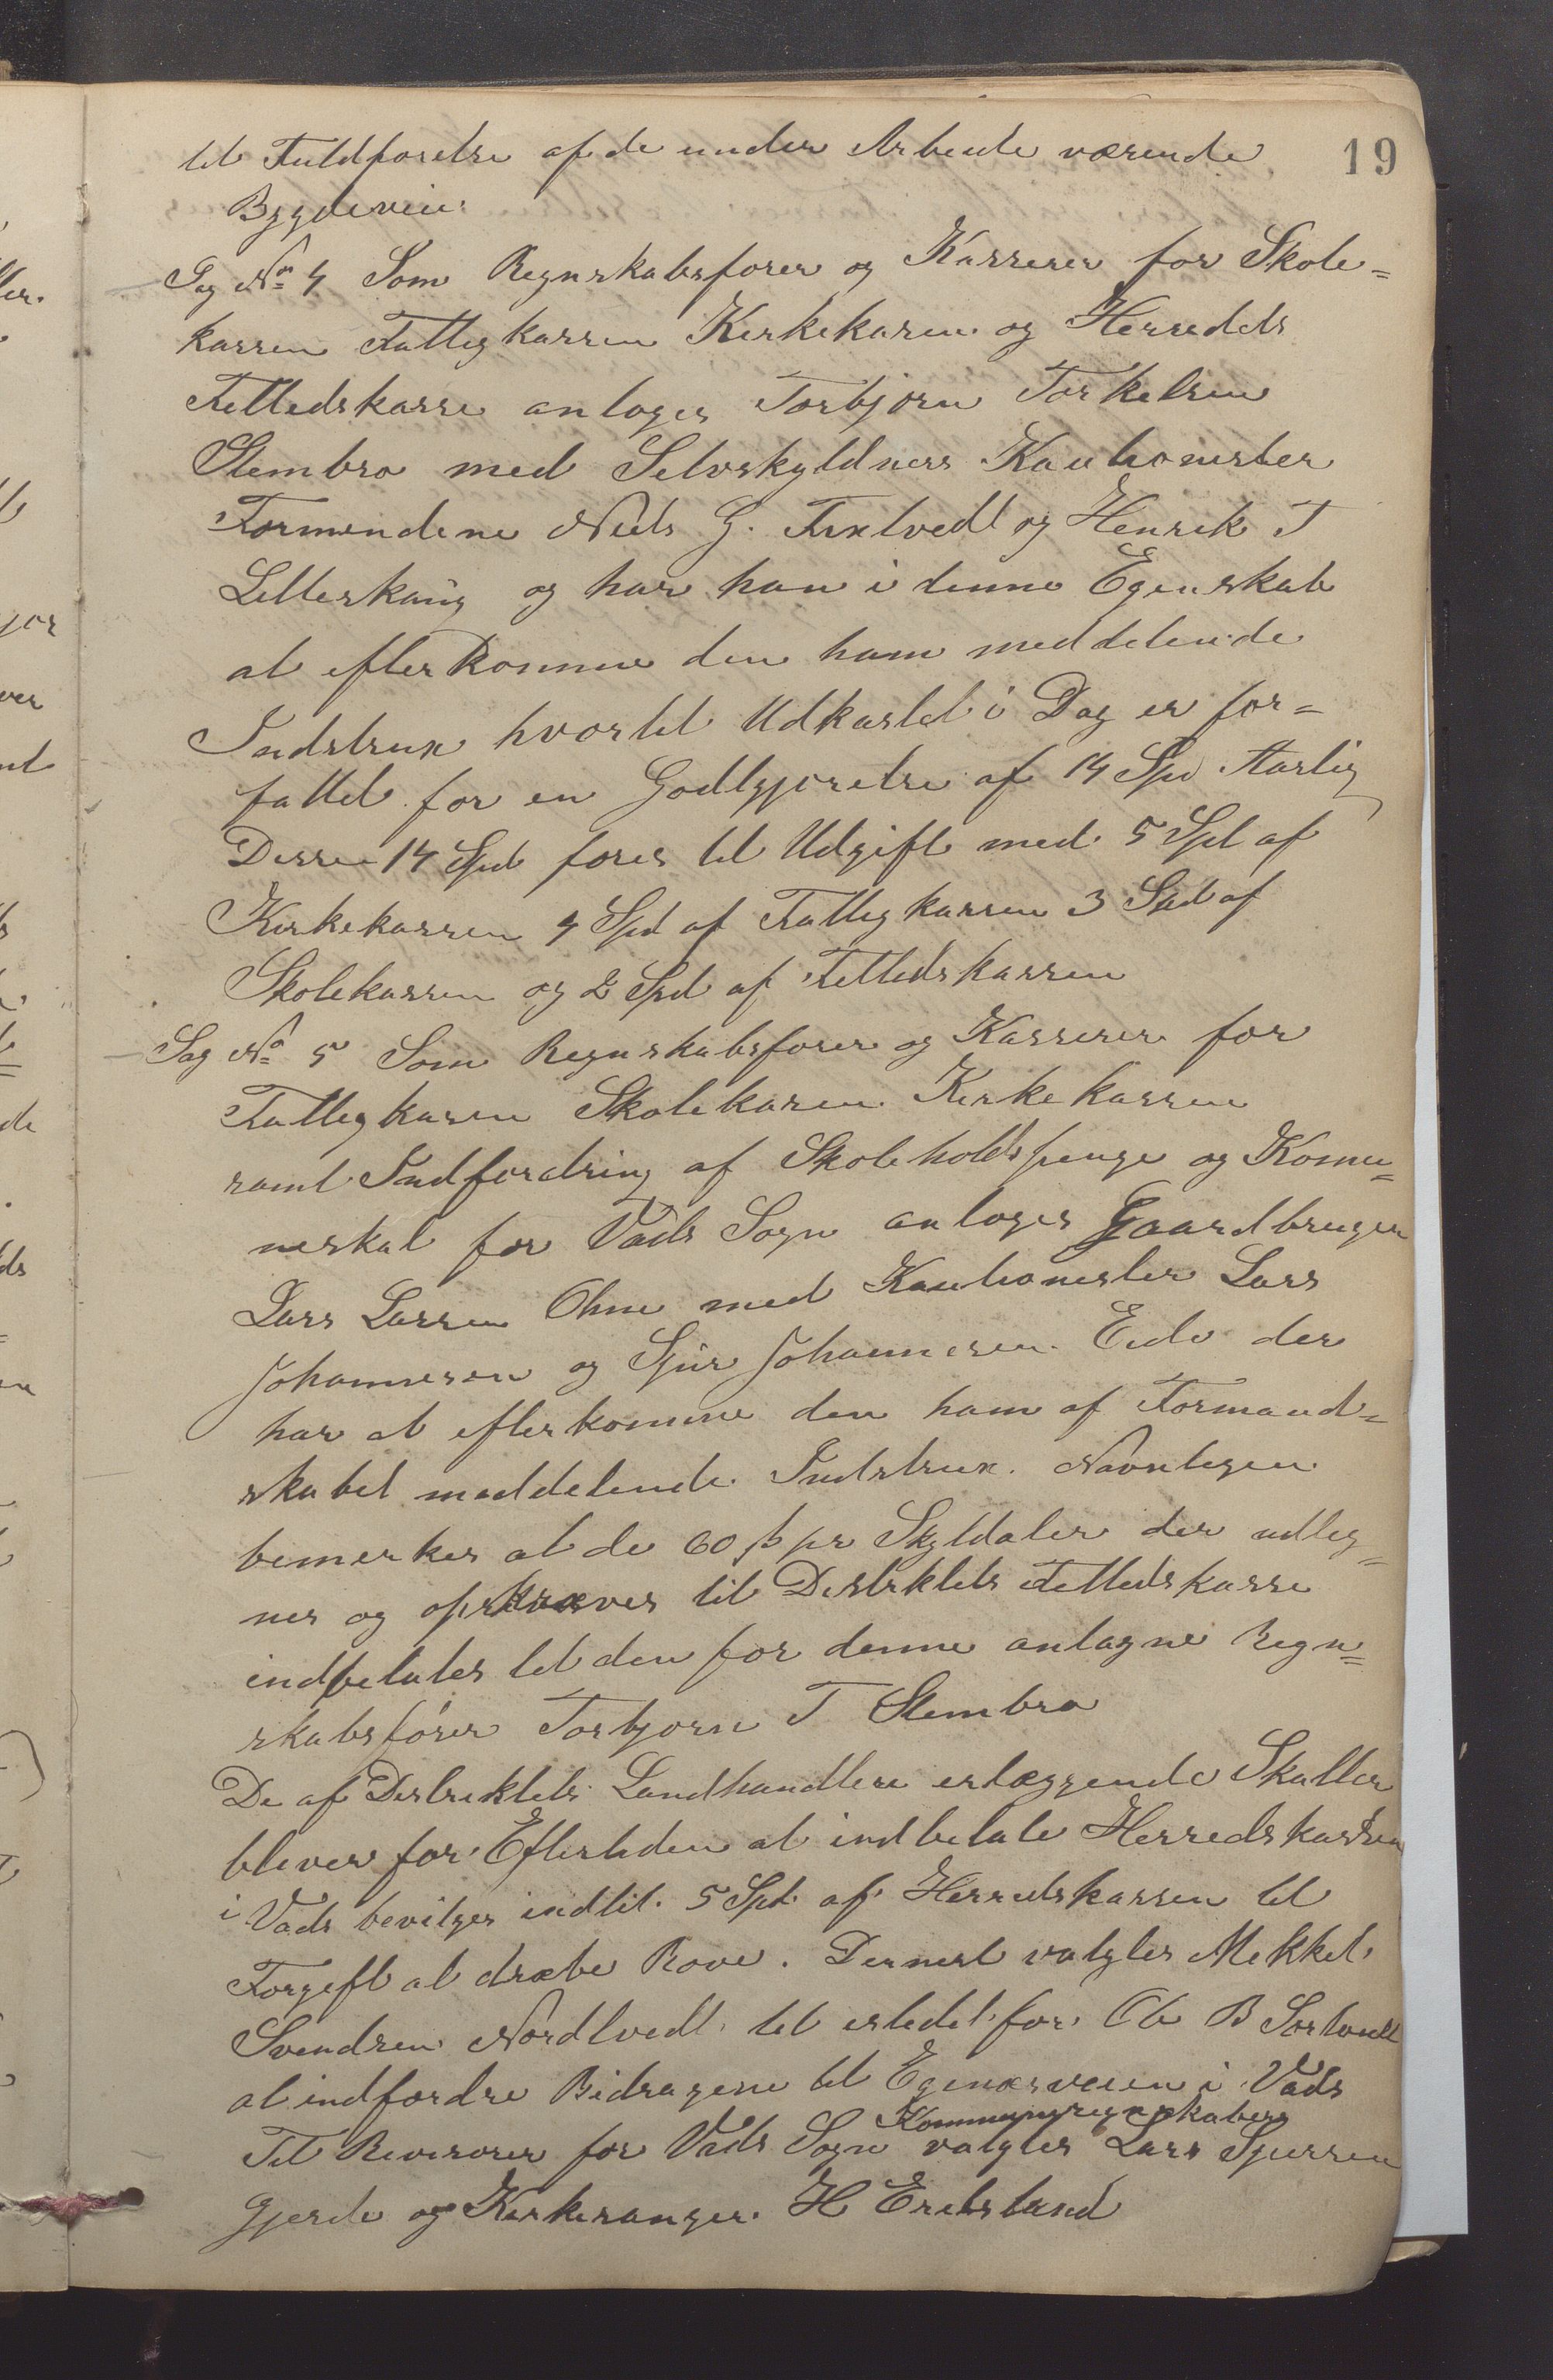 19
til Fuldførelse af de under Arbeide værende
Bygdeveie.
Sag No 4 Som Regnskabsfører og Kasserer for Skole=
kassen Fattigkassen Kirkekassen og Herredets
Fælledskasse antoges Torbjørn Torkelsen
Stembro med Selvskyldners Kautionister
Formændene Niels G. Textvedt og Henrik T
Litleskaug og har han i denne Egenskab
at efterkomme den ham meddelende
Indstrux hvortil Udkastet i Dag er for=
fattet for en Godtgjørelse af 14 Spd Aarlig
Disse 14 Spd føres til Udgift med 5 Spd af
Kirkekassen 4 Spd af Fattigkassen 3 Spd af
Skolekassen og 2 Spd af Fælledskassen
Sag No 5 Som Regnskabsfører og Kasserer for
Fattigkassen Skolekassen Kirkekassen
samt Indfordring af Skoleholdspenge og Komu=
neskat for Vads Sogn antoges Gaardbruger
Lars Larsen Ohm med Kautionister Lars
Johannesen og Sjur Johannesen Eide der
har at efterkomme den ham af Formand=
skabet meddelende Indstrux. Navnligen
bemerkes at de 60 ß pr Skyldaler der udlig=
nes og opkræves til Distriktets Fælledskasse
indbetales til den for denne antagne Regn=
skabsfører Torbjørn T Stembro
De af Distriktets Landhandlere erlæggende Skatter
bliver for Eftertiden at indbetale Herredskassen
i Vads bevilges indtil 5 Spd af Herredskassen til
Forgift at dræbe Rove. Dernest valgtes Mikkel
Svendsen Nordtvedt til istedet for Ole B Sortvedt
at indfordre Bidragene til Egenæsveien i Vads
Kommuneregnskabers
Til Revisorer for Vads Sogn valgtes Lars Sjursen
Gjerde og Kirkesanger H Erdsland